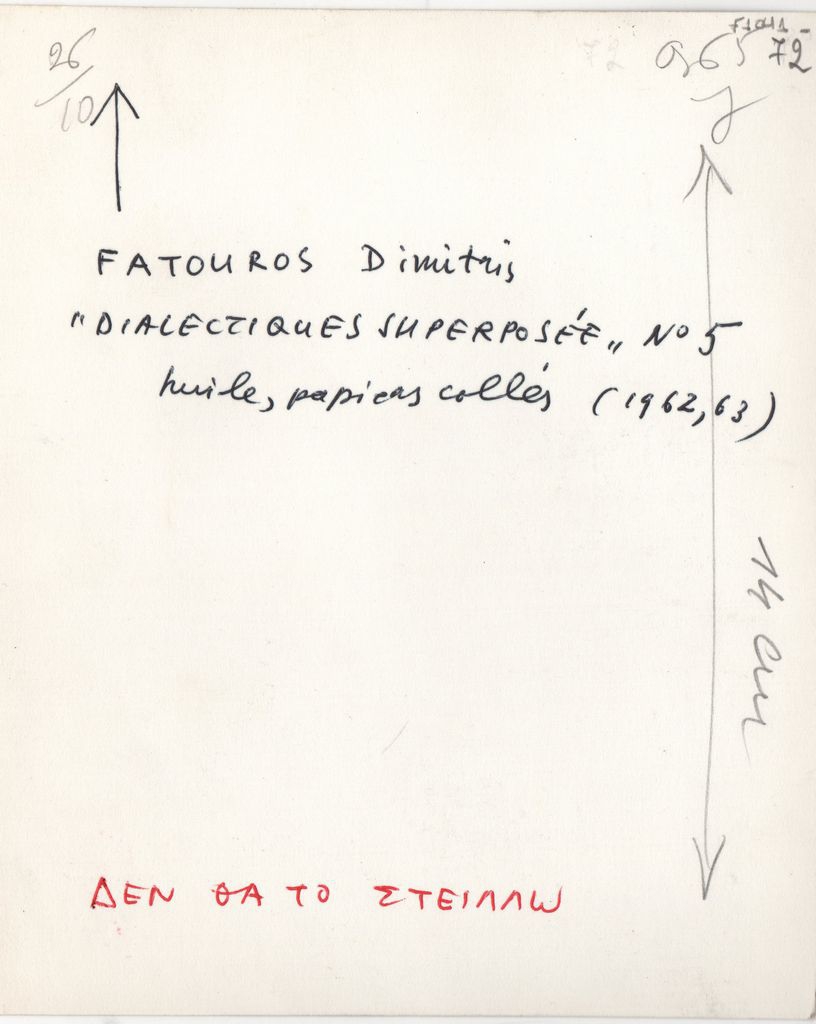 26/10
72
FATOUROS Dimitris
"DIALECTIQUES SUPERPOSÉE„ Nº 5
huile, papiers collés (1962, 63)
14 cm
ΔΕΝ ΘΑ ΤΟ ΣΤΕΙΛΛω